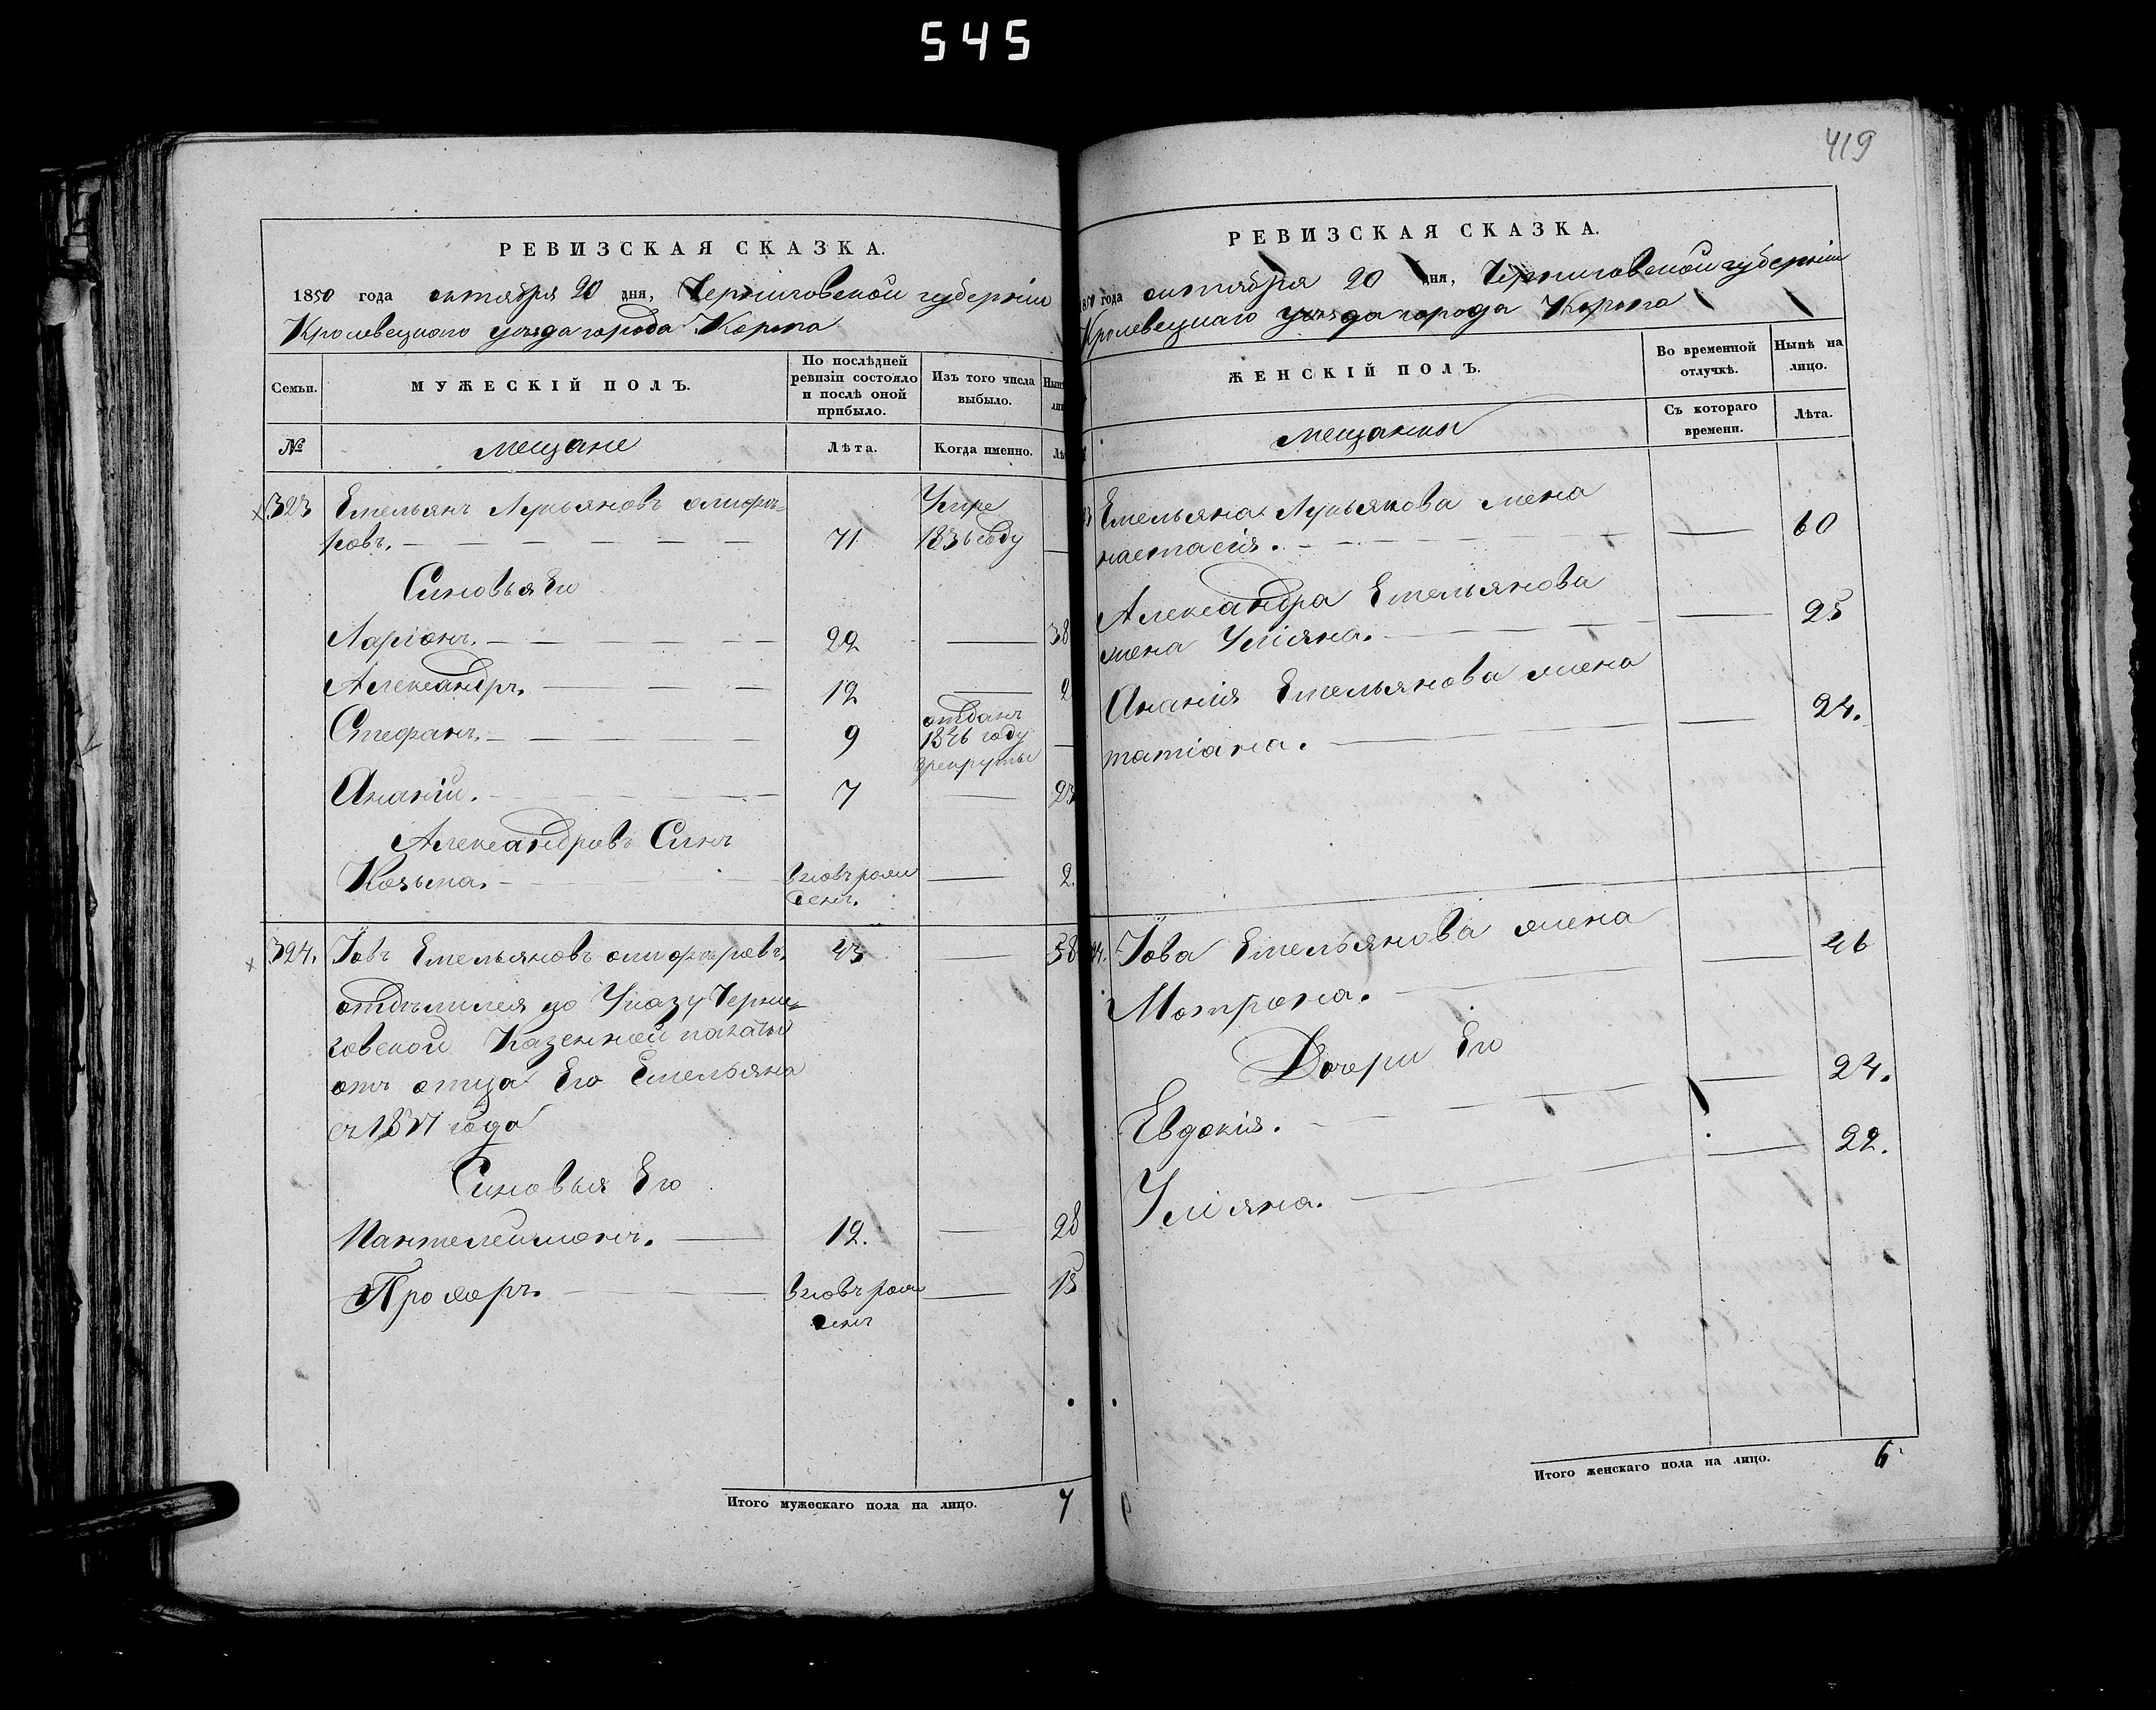 545
419
РЕВИЗСКАЯ СКАЗКА.
1850 года октября 20 дня, Черниговской губерніи
Кролевецкого уезда города Коропа
Семьи.
МУЖЕСКІЙ ПОЛЪ.
По послѣдней
ревизіи состояло
и послѣ оной
прибыло.
Изъ того числа
выбыло.
№
мещане
Лѣта.
Когда именно.
323
Емельянъ Лукьяновъ
ровъ.
71
Умре
1836 году
Синовья Его
Ларіонъ.
22
38
Александръ.
12
Стефанъ.
9
отданъ
1846 году
врекруты
Ананій.
7
23
Александровъ Синъ
Козьма.
вновърож
денъ.
2
324.
Іовъ Емельяновъ
43
58
отделился по Указу Черни=
говской Казенной палаты
отъ отца Его Емельяна
съ 1837 года
Синовья Его
Пантелеймонъ.
12.
28
Прохоръ.
вновърож
денъ
13
Итого мужескаго пола на лицо.
7
РЕВИЗСКАЯ СКАЗКА.
1850 года октября 20 дня, Черниговской губерніи
Кролевецкаго уезда города Коропа
ЖЕНСКІЙ ПОЛЪ.
Во временной
отлучкѣ.
Нынѣ на
лицо.
мещанки
Съ котораго
времени.
Лѣта.
Емельяна Лукьянова жена
настасія.
60
Александра Емельянова
жена Уліяна.
25
Ананія Емельянова жена
татіана.
24.
Іова Емельянова жена
46
Мотрона.
Дочери Его
Евдокія.
24.
Уліяна.
22.
Итого женскаго пола на лицо.
6